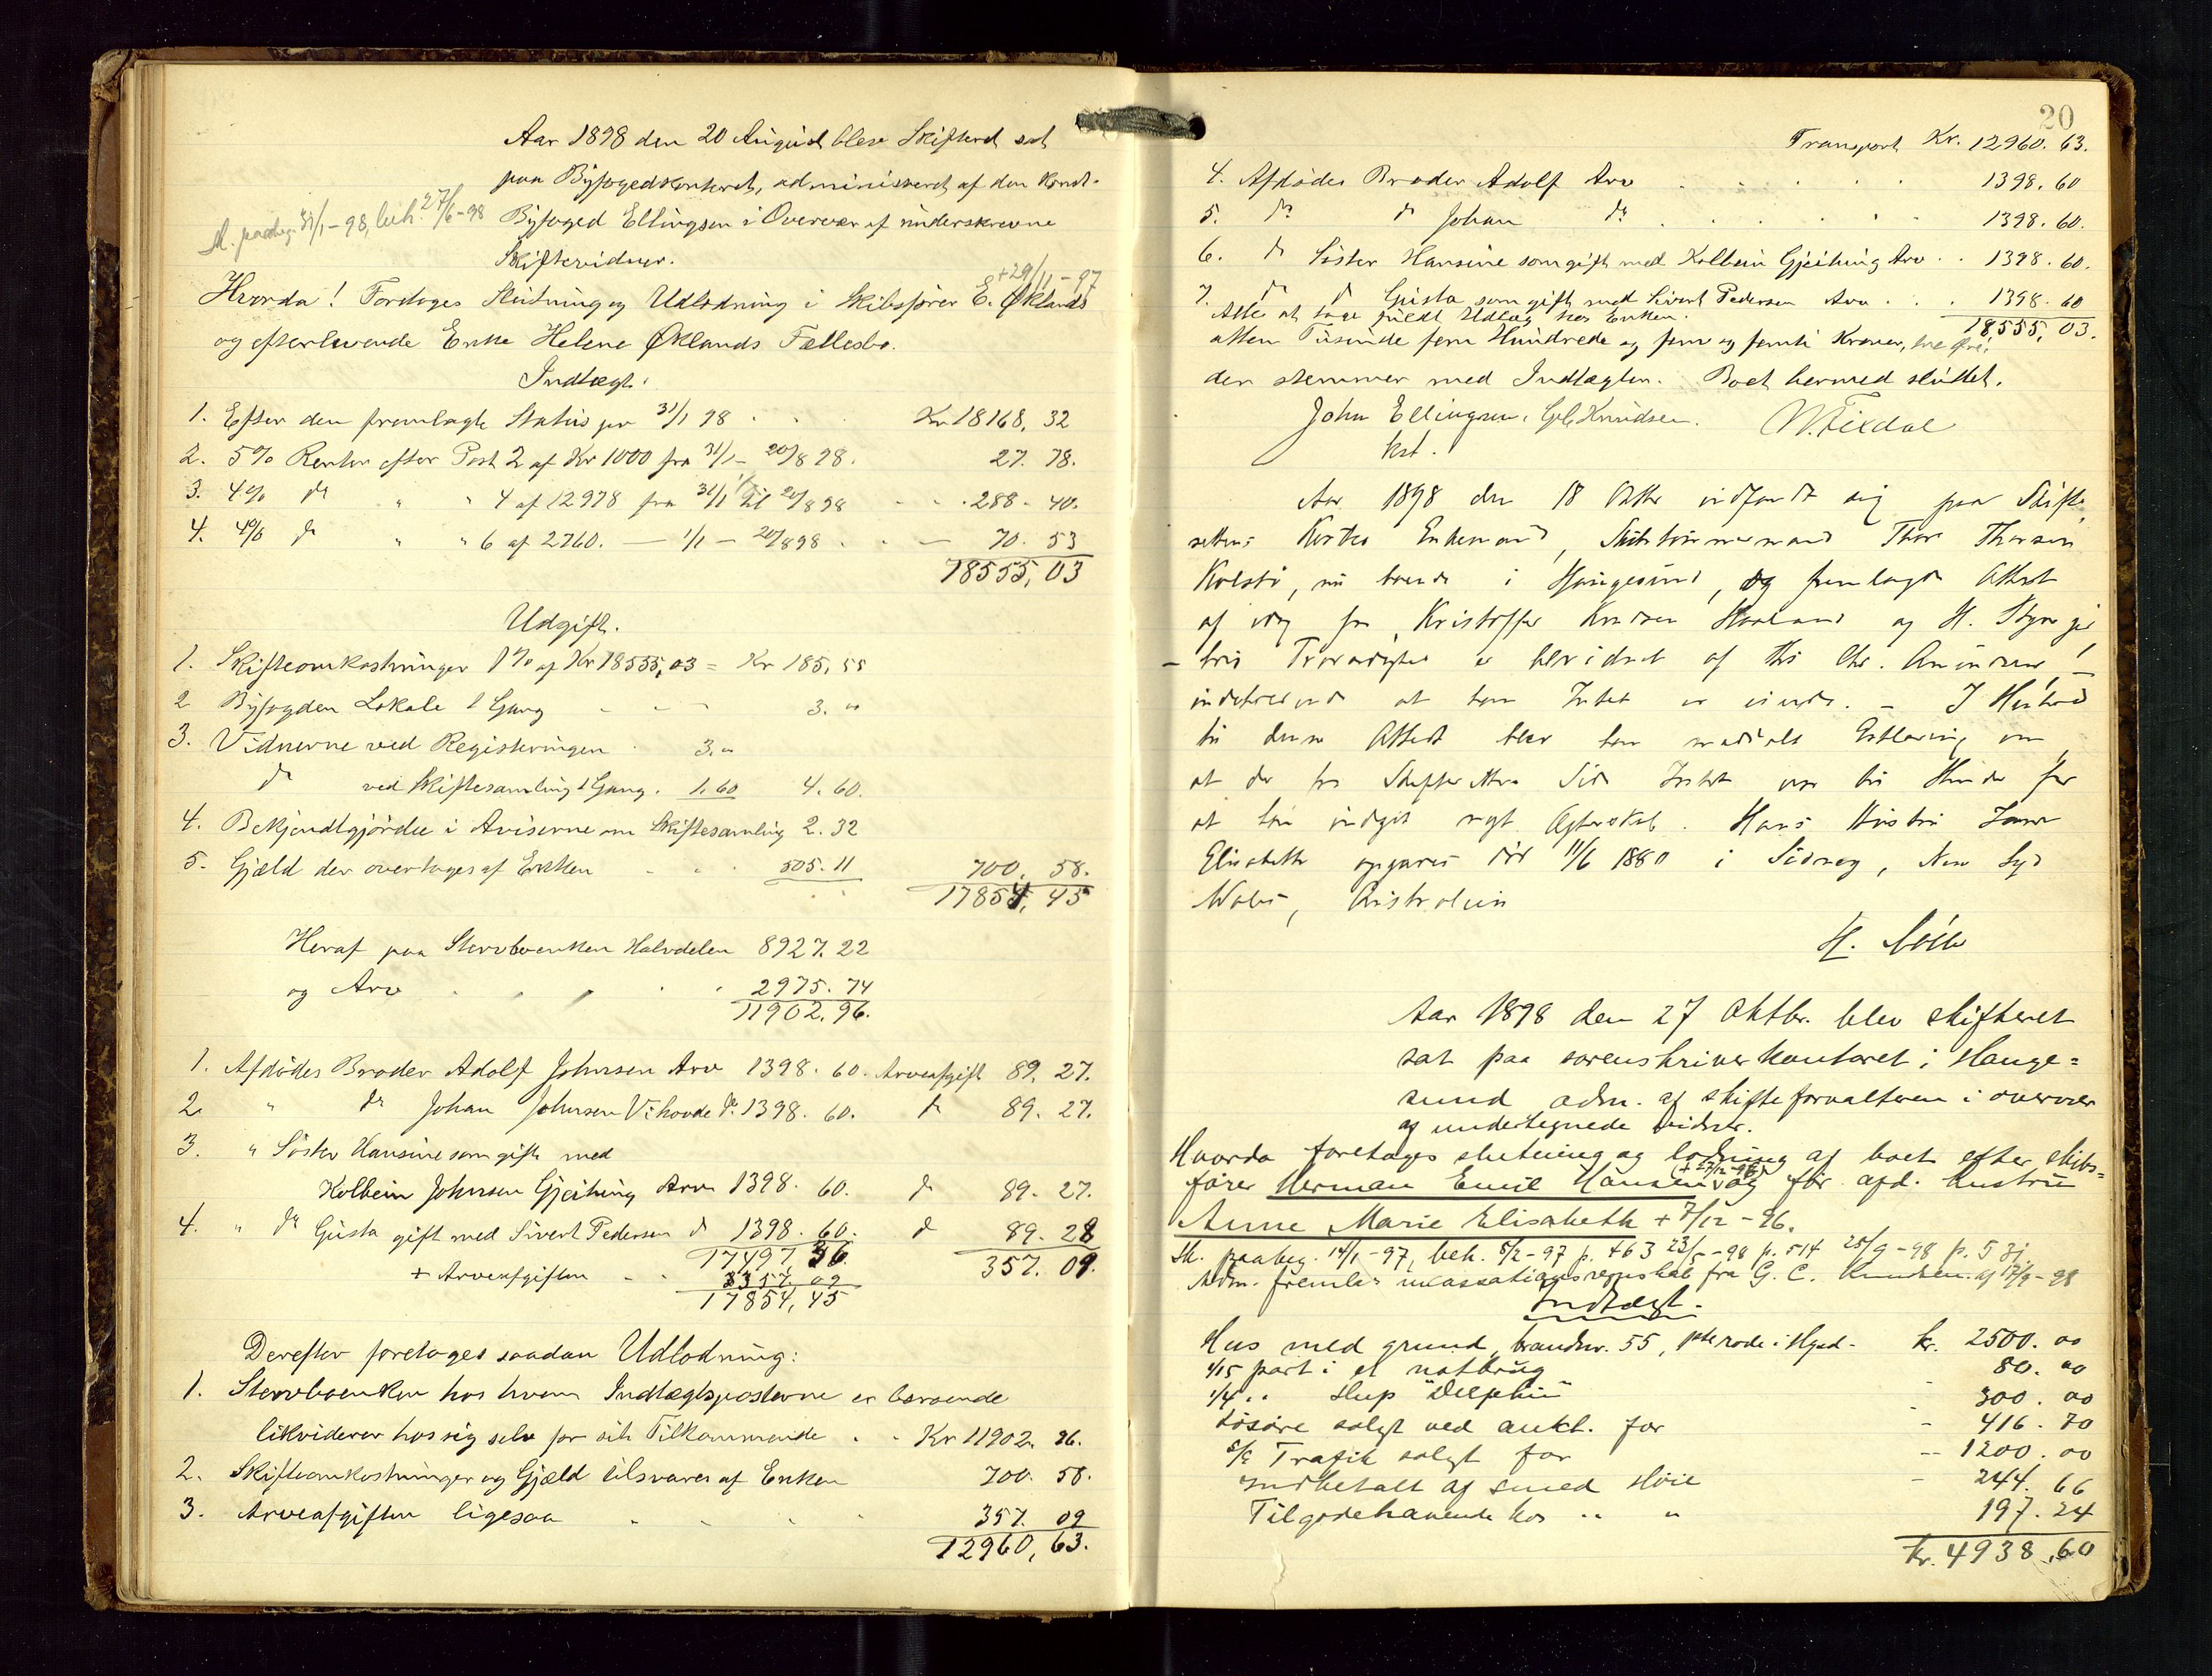 Aar 1898 den 20 August blev Skifteret sat
paa Byfogedkontoret, administreret af den konst.
Byfoged Ellingsen i Overvær af underskrevne
Skiftevidner.
Sk. paabeg. 31/1-98, beh. 27/6-98
+29/11-97
Hvorda! Foretoges Slutning og Udlodning i Skibsfører E. Øklands
og efterlevende Enke Helene Øklands Fællesbo.
Indtægt:
1. Efter den fremlagte Status pr 31/1 98 Kr 18168, 32
2. 5% Renter efter Post 2 af Kr 1000 fra 31/1 - 20/8 98. 27. 78.
3. 4% do " " 4 af 12978 fra 31/1 til 20/8 98 288. 40.
4. 4% do " " 6 af 2760. — 1/1 — 20/8 98 — 70. 53
18555, 03
Udgift.
1. Skifteomkostninger 1% af Kr 18555,03 = Kr 185, 55
2 Byfogden Lokale 1 Gang 3. "
3. Vidnerne ved Registeringen 3. "
do ved Skiftesamling 1 Gang. 1.60 4. 60.
4. Bekjendtgjørelse i Aviserne om Skiftesamling 2. 32
5. Gjæld der overtages af Enken 505. 11 700. 58.
17854, 45
Heraf paa Stervboenken Halvdelen 8927. 22
og Arv 2975. 74
11902. 96.
1. Afdødes Broder Adolf Johnsen Arv 1398. 60. Arveafgift 89. 27.
2. " do Johan Johnsen Vihovde do. 1398. 60. do 89. 27.
3. " Søster Hansine som gift med
Kolbein Johnsen Gjeitung Arv 1398. 60. do 89. 27.
4. " do Gusta gift med Sivert Pedersen do 1398. 60. do 89. 28
17497, 36 357. 09.
+ Arveafgiften 357. 09
17854, 45
Derefter foretoges saadan Udlodning:
1. Stervboenken hos hvem Indtægtsposterne er beroende
likviderer hos sig selv for sit Tilkommende Kr 11902. 96.
2. Skifteomkostninger og Gjæld tilsvares af Enken 700. 58.
3. Arveafgiften ligesaa 357. 09
12960, 63.
20
Transport Kr. 12960. 63.
4. Afdødes Broder Adolf Arv 1398. 60
5. do do Johan do 1398. 60.
6. do Søster Hansine som gift med Kolbein Gjeitung Arv 1398. 60.
7. do do Gusta som gift med Sivert Pedersen Arv 1398. 60
Alle at tage Udlæg hos Enken. 18555, 03.
atten Tusinde fem Hundrede og fem og femti Kroner, tre Øre,
der stemmer med Indtægten. Boet hermed sluttet.
John Ellingsen, Gab. Knudsen. N. Fixdal
kst.
Aar 1898 den 18 Oktbr indfandt sig paa Skifte
rettens Kontor Enkemand, Skibstømmermand Thore Thorsen
Kolstø, nu boende i Haugesund, og fremlagde Attest
af idag fra Kristoffer Knudsen Haaland og H.
- hvis Troværdighed er bevidnet af Ths Chr. Amundsen -
indeholdende at han Intet er eiende. - I Henhold
til denne Attest blev ham meddelt Erklæring om
at der fra Skifterettens Side Intet var til Hinder for
at han indgik nyt Ægteskab. Hans Hustru
Elisabeth opgaves død 11/6 1880 i Sidney, New Syd
Wales, Australien

Aar 1898 den 27 Oktbr. blev skifteret
sat paa sorenskriverkontoret i Hauge=
sund adm. af skifteforvalteren i overvær
af undertegnede vidner.
Hvorda foretoges slutning og lodning af boet efter skibs=
(+ 27/12-96)
fører Herman Emil Hansen og før afd. hustru
Anne Marie Elisabeth + 7/12-96.
Sk. paabeg. 14/1-97, beh. 5/2-97 p. 463 23/5-98 p. 514 25/9-98 p. 5
Adm. fremla inkassationsregnskab fra G. C. Knudsen af 17/9-98
Indtægt.
Hus med grund, brandnr. 55, 1ste rode i Hgsd. kr. 2500. 00
1/15 part i et notbrug 80. 00
1/4 " " Slup "Delphin" 300. 00
Løsøre solgt ved aukt. for - 416. 70
S/S Trafik solgt for - 1200. 00
Indbetalt af smed Høie - 244. 66
Tilgodehavende hos " " 197. 24
kr. 4938, 60